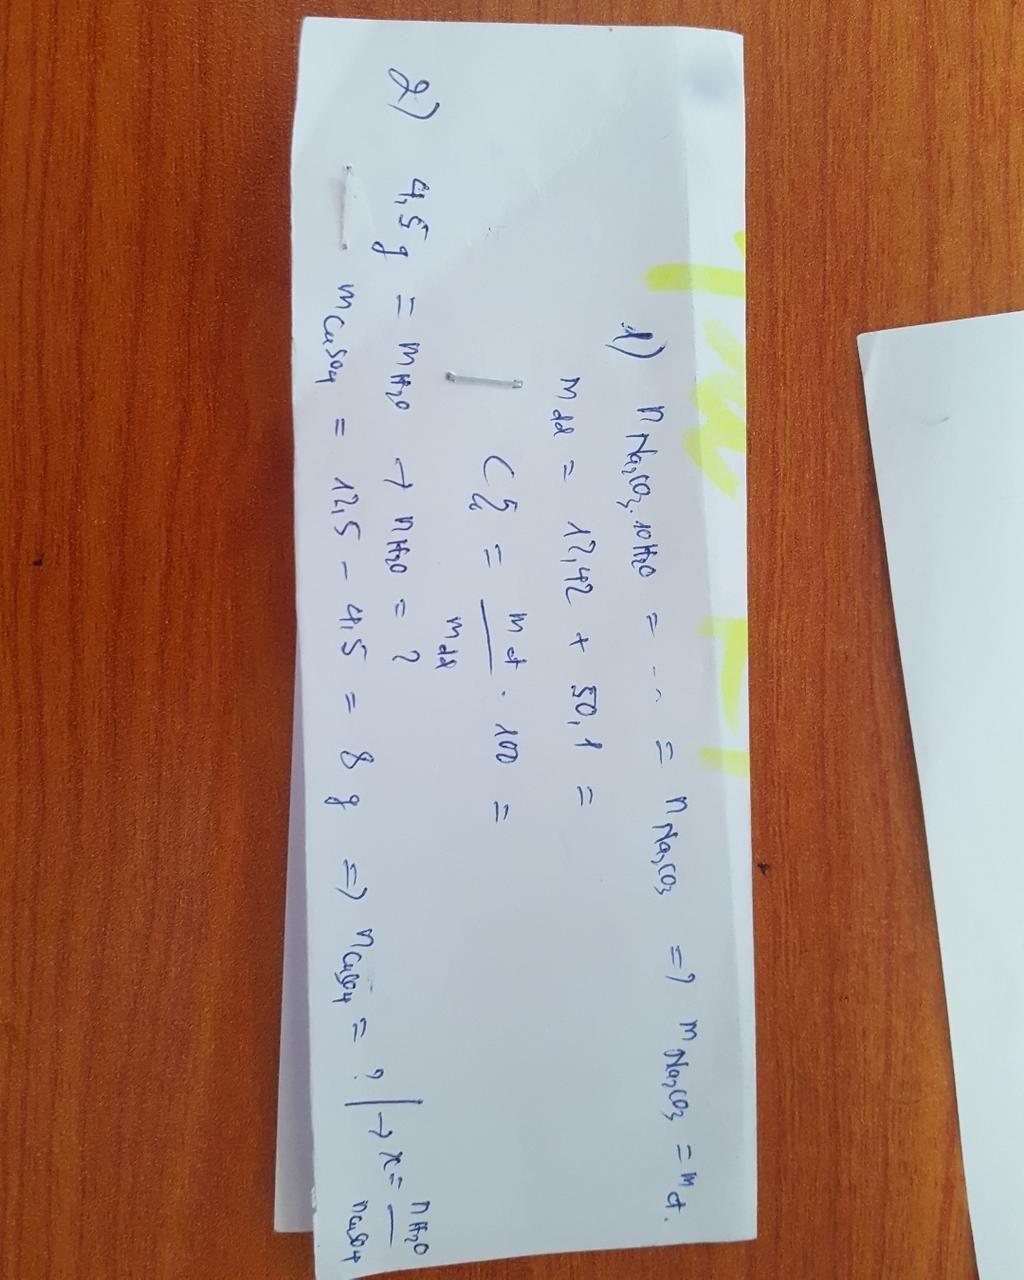 1) nNa2CO3.10H2O = ... = nNa2CO3 => mNa2CO3 = mct.
mdd = 12,42 + 50,1 =
C% = mct / mdd . 100 =
2) 4,5g = mH2O → nH2O = ?
mCuSO4 = 12,5 - 4,5 = 8g => nCuSO4 = ? | → x = nH2O / nCuSO4